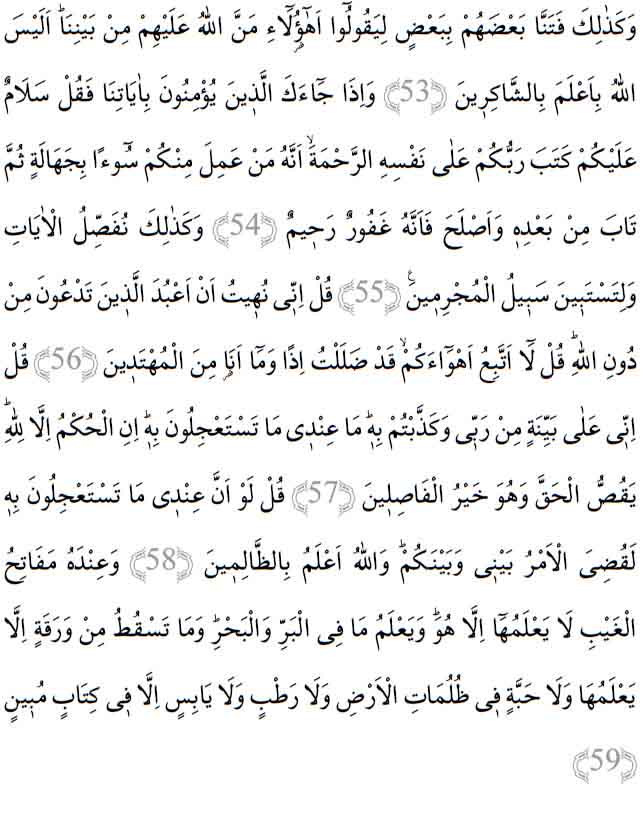 وَكَذٰلِكَ فَتَنَّا بَعْضَهُمْ بِبَعْضٍ لِيَقُولُٓوا اَهٰٓؤُ۬لَٓاءِ مَنَّ اللّٰهُ عَلَيْهِمْ مِنْ بَيْنِنَاۜ اَلَيْسَ
اللّٰهُ بِاَعْلَمَ بِالشَّاكِر۪ينَ ﴿53﴾ وَاِذَا جَٓاءَكَ الَّذ۪ينَ يُؤْمِنُونَ بِاٰيَاتِنَا فَقُلْ سَلَامٌ
عَلَيْكُمْ كَتَبَ رَبُّكُمْ عَلٰى نَفْسِهِ الرَّحْمَةَۙ اَنَّهُ مَنْ عَمِلَ مِنْكُمْ سُٓوءًا بِجَهَالَةٍ ثُمَّ
تَابَ مِنْ بَعْدِه۪ وَاَصْلَحَ فَاَنَّهُ غَفُورٌ رَح۪يمٌ ﴿54﴾ وَكَذٰلِكَ نُفَصِّلُ الْاٰيَاتِ
وَلِتَسْتَب۪ينَ سَب۪يلُ الْمُجْرِم۪ينَ۟ ﴿55﴾ قُلْ اِنّ۪ي نُه۪يتُ اَنْ اَعْبُدَ الَّذ۪ينَ تَدْعُونَ مِنْ
دُونِ اللّٰهِۜ قُلْ لَٓا اَتَّبِعُ اَهْوَٓاءَكُمْۙ قَدْ ضَلَلْتُ اِذًا وَمَٓا اَنَا۬ مِنَ الْمُهْتَد۪ينَ ﴿56﴾ قُلْ
اِنّ۪ي عَلٰى بَيِّنَةٍ مِنْ رَبّ۪ي وَكَذَّبْتُمْ بِه۪ۜ مَا عِنْد۪ي مَا تَسْتَعْجِلُونَ بِه۪ۜ اِنِ الْحُكْمُ اِلَّا لِلّٰهِۜ
يَقُصُّ الْحَقَّ وَهُوَ خَيْرُ الْفَاصِل۪ينَ ﴿57﴾ قُلْ لَوْ اَنَّ عِنْد۪ي مَا تَسْتَعْجِلُونَ بِه۪
لَقُضِيَ الْاَمْرُ بَيْن۪ي وَبَيْنَكُمْۜ وَاللّٰهُ اَعْلَمُ بِالظَّالِم۪ينَ ﴿58﴾ وَعِنْدَهُ مَفَاتِحُ
الْغَيْبِ لَا يَعْلَمُهَٓا اِلَّا هُوَۜ وَيَعْلَمُ مَا فِي الْبَرِّ وَالْبَحْرِۜ وَمَا تَسْقُطُ مِنْ وَرَقَةٍ اِلَّا
يَعْلَمُهَا وَلَا حَبَّةٍ ف۪ي ظُلُمَاتِ الْاَرْضِ وَلَا رَطْبٍ وَلَا يَابِسٍ اِلَّا ف۪ي كِتَابٍ مُب۪ينٍ
﴿59﴾